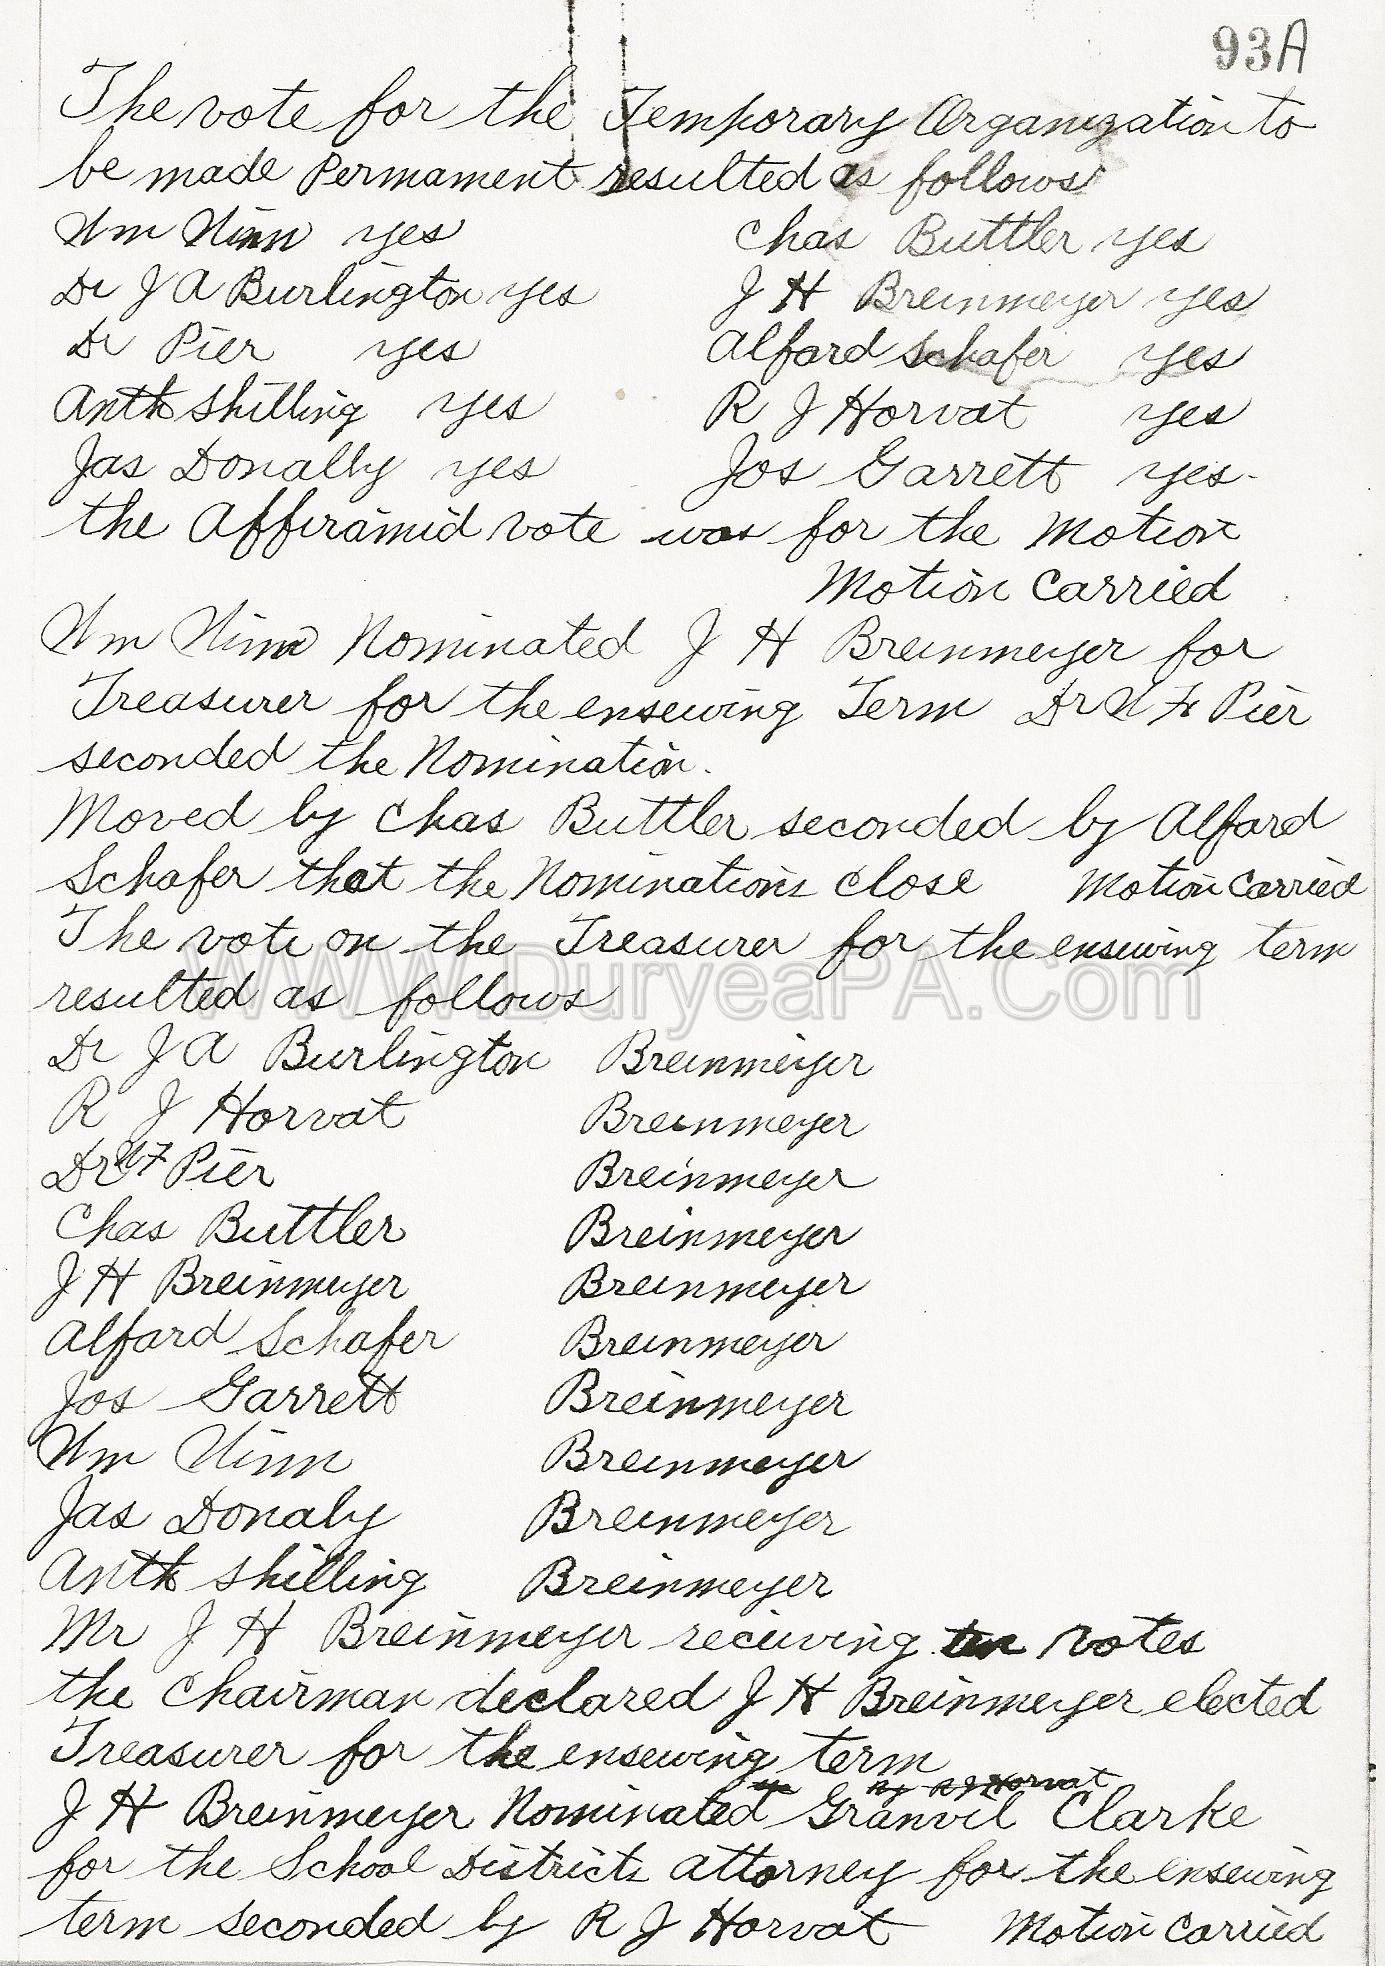 93A
The vote for the Temporary Organization to
be made Permament resulted as follows
Wm Ninn yes Chas Buttler yes
Dr J A Burlington yes J H Breinmeyer yes
Dr Pier yes Alfard Schafer yes
Anth Shilling yes R J Horvat yes
Jas Donally yes Jos Garrett yes-
the Affiramid vote was for the Motion
Motion Carried
Wm Ninn Nominated J H Breinmeyer for
Treasurer for the ensewing Term Dr N F Pier
seconded the Nomination.
Moved by Chas Buttler seconded by Alfard
Schafer that the Nominations close Motion Carried
The vote on the Treasurer for the ensewing term
WWW.DuryeaPA.Com
resulted as follows
Dr J A Burlington Breinmeyer
R J Horvat Breinmeyer
Dr N F Pier Breinmeyer
Chas Buttler Breinmeyer
J H Breinmeyer Breinmeyer
Alfard Schafer Breinmeyer
Jos Garrett Breinmeyer
Wm Ninn Breinmeyer
Jas Donaly Breinmeyer
Anth Shilling Breinmeyer
Mr J H Breinmeyer receiving ten votes
the Chairman declared J H Breinmeyer elected
Treasurer for the ensewing term
by R J Horvat
J H Breinmeyer Nominated Granvil Clarke
for the School Districts attorney for the ensewing
term seconded by R J Horvat Motion Carried